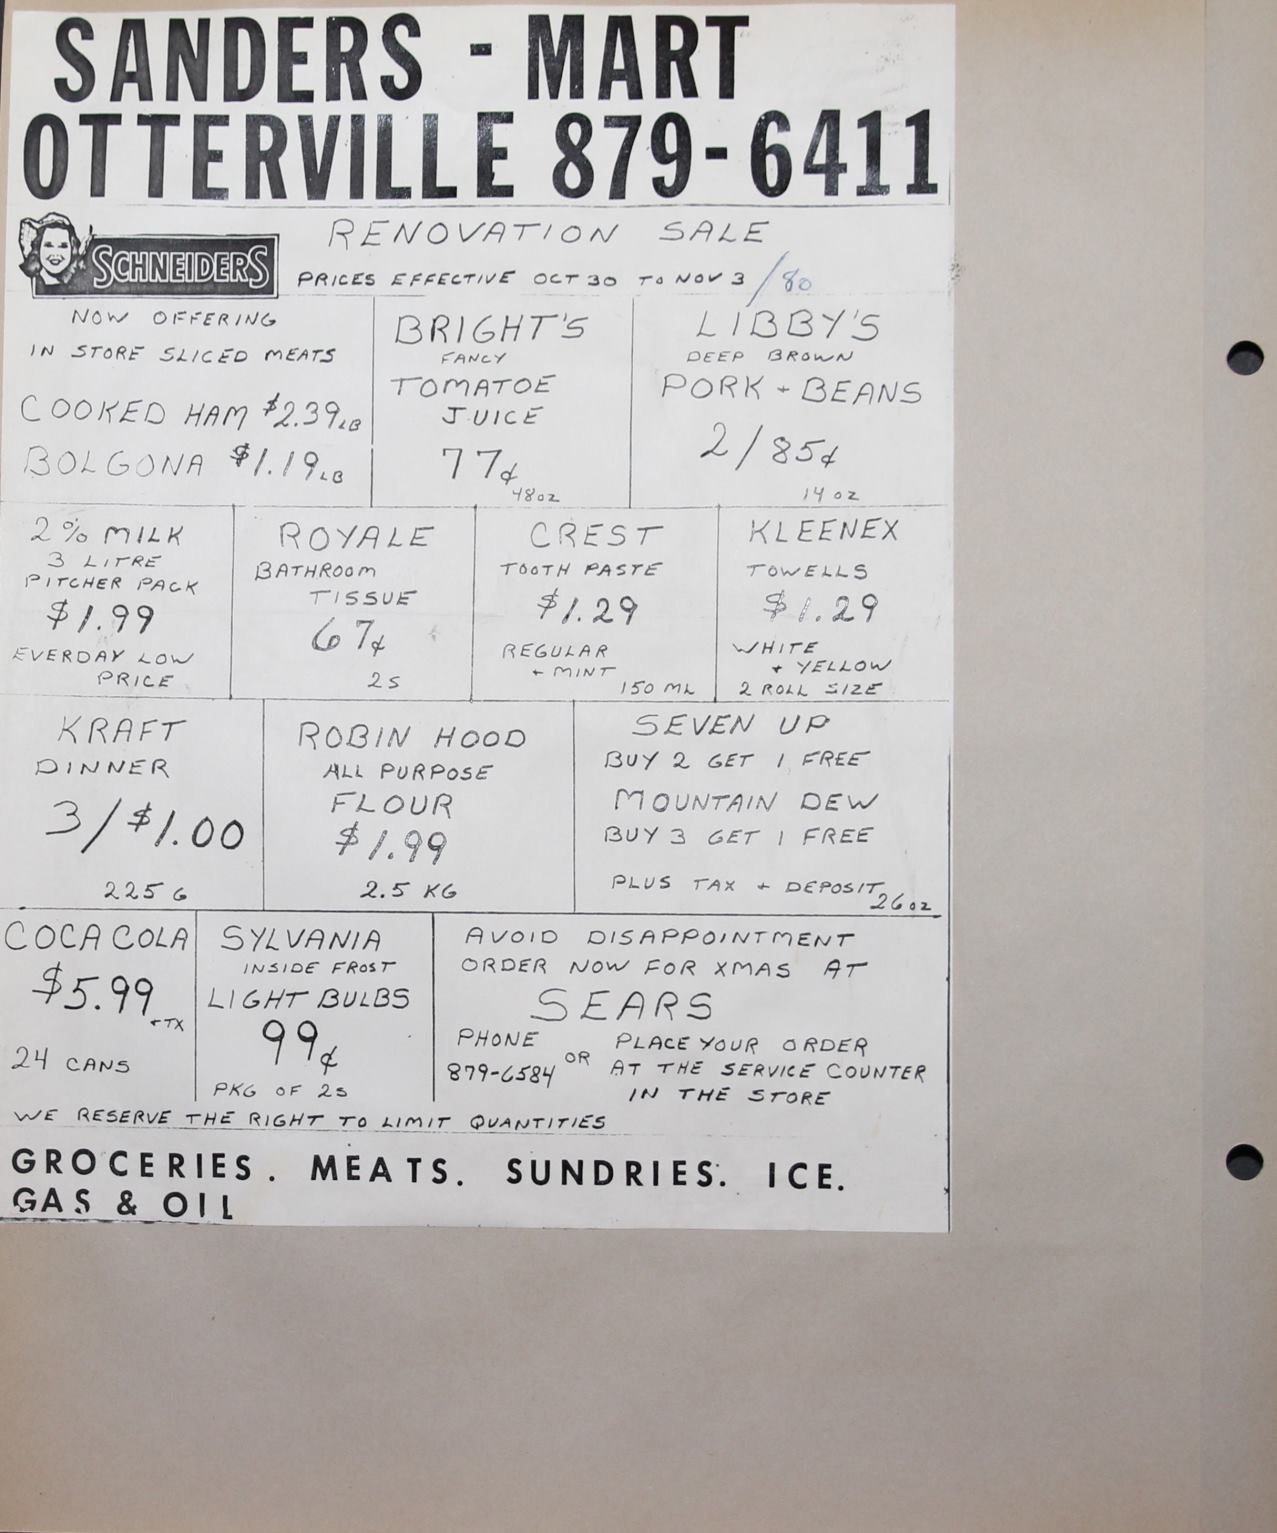 SANDERS - MART
OTTERVILLE 879-6411
SCHNEIDERS
RENOVATION SALE
PRICES EFFECTIVE OCT 30 TO NOV 3 /80
NOW OFFERING
IN STORE SLICED MEATS
COOKED HAM $2.39 LB
BOLGONA $1.19 LB
BRIGHT'S
FANCY
TOMATOE
JUICE
77¢
48 OZ
LIBBY'S
DEEP BROWN
PORK + BEANS
2/85¢
14 OZ
2% MILK
3 LITRE
PITCHER PACK
$1.99
EVERDAY LOW
PRICE
ROYALE
BATHROOM
TISSUE
67¢
2S
CREST
TOOTH PASTE
$1.29
REGULAR
+ MINT
150 ML
KLEENEX
TOWELLS
$1.29
WHITE
+ YELLOW
2 ROLL SIZE
KRAFT
DINNER
3/$1.00
225 G
ROBIN HOOD
ALL PURPOSE
FLOUR
$1.99
2.5 KG
SEVEN UP
BUY 2 GET 1 FREE
MOUNTAIN DEW
BUY 3 GET 1 FREE
PLUS TAX + DEPOSIT
26 OZ
COCA COLA
$5.99
+ TX
24 CANS
SYLVANIA
INSIDE FROST
LIGHT BULBS
99¢
PKG OF 2S
AVOID DISAPPOINTMENT
ORDER NOW FOR XMAS AT
SEARS
PHONE
879-6584
OR
PLACE YOUR ORDER
AT THE SERVICE COUNTER
IN THE STORE
WE RESERVE THE RIGHT TO LIMIT QUANTITIES
GROCERIES. MEATS. SUNDRIES. ICE.
GAS & OIL